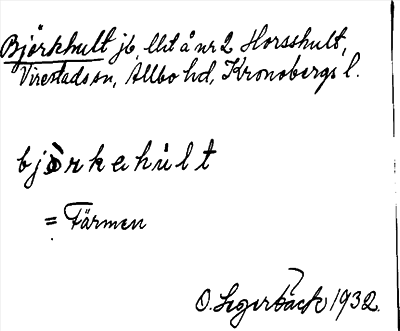 Björkhult jb, lht å nr 2 Horsshult,
Virestads sn, Allbo hd, Kronobergs l.
bjòrkehùlt
= Färmen
O. Segerbäck 1932.